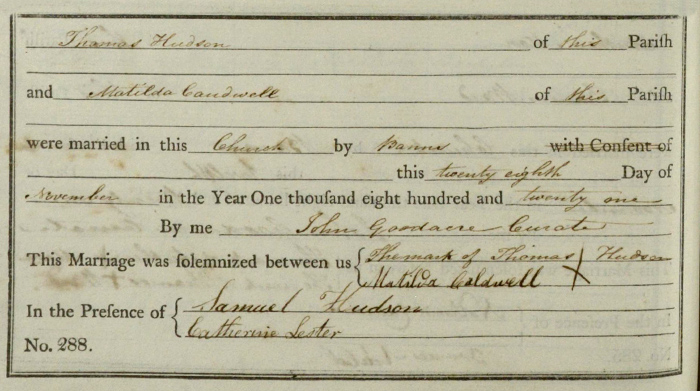 Thomas Hudson of this Pariſh
and Matilda Caudwell of this Pariſh
were married in this Church by Banns with Conſent of
this twenty eighth Day of
November in the Year One thouſand eight hundred and twenty one
By me John Goodacre Curate
This Marriage was ſolemnized between us { The mark of Thomas X Hudson
Matilda Caldwell
In the Preſence of { Samuel Hudson
Catherine Lester
No. 288.